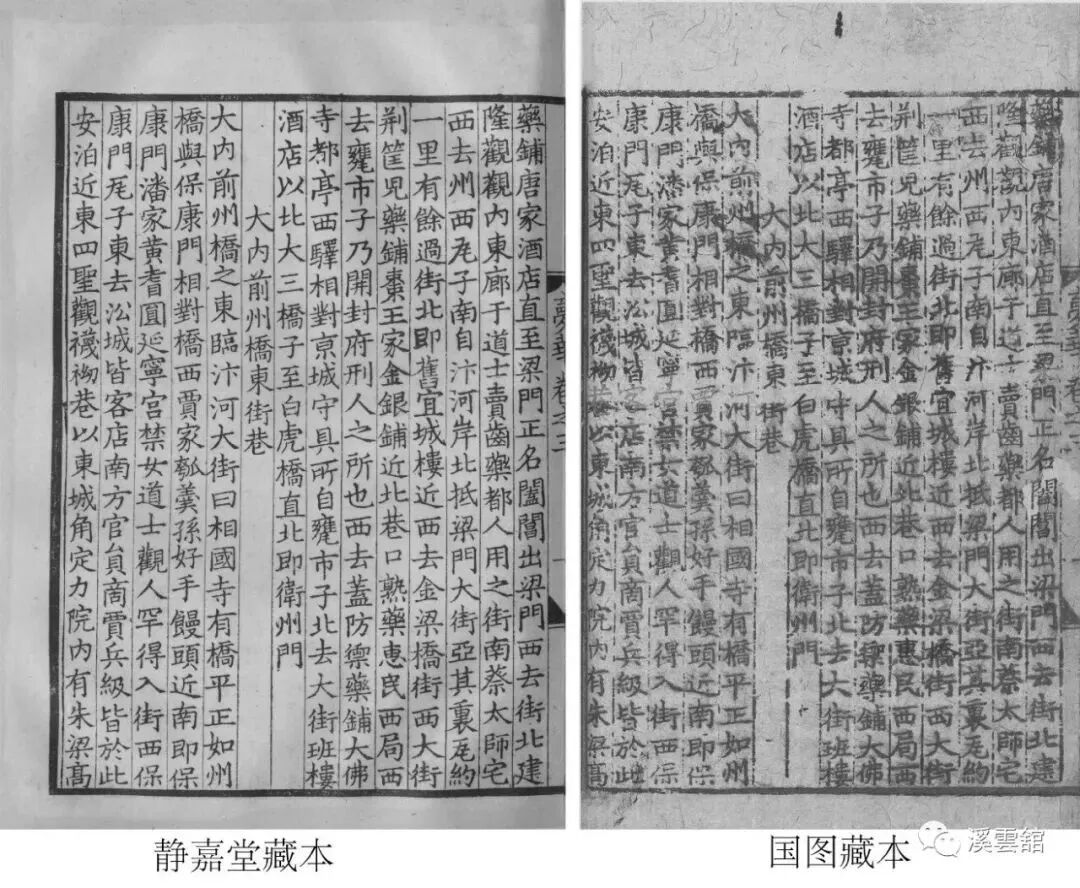 藥鋪唐家酒店直至梁門正名闔閭出梁門西去街北建
隆觀觀內東廊于道士賣齒藥都人用之街南蔡太師宅
西去州西瓦子南自汴河岸北抵梁門大街亞其裏瓦約
一里有餘過街北即舊宜城樓近西去金梁橋街西大街
荆筐兒藥鋪棗王家金銀鋪近北巷口熟藥惠民西局西
去甕市子乃開封府刑人之所也西去蓋防禦藥鋪大佛
寺都亭西驛相對京城守具所自甕市子北去大街班樓
酒店以北大三橋子至白虎橋直北即衛州門
大內前州橋東街巷
大內前州橋之東臨汴河大街曰相國寺有橋平正如州
橋與保康門相對橋西賈家瓠羹孫好手饅頭近南即保
康門潘家黃耆圓延寧宮禁女道士觀人罕得入街西保
康門瓦子東去沿城皆客店南方官員商賈兵級皆於此
安泊近東四聖觀襪袎巷以東城角定力院內有朱梁高
静嘉堂藏本
藥鋪唐家酒店直至梁門正名闔閭出梁門西去街北建
隆觀觀內東廊于道士賣齒藥都人用之街南蔡太師宅
西去州西瓦子南自汴河岸北抵梁門大街亞其裏瓦約
一里有餘過街北即舊宜城樓近西去金梁橋街西大街
荆筐兒藥鋪棗王家金銀鋪近北巷口熟藥惠民西局西
去甕市子乃開封府刑人之所也西去蓋防禦藥鋪大佛
寺都亭西驛相對京城守具所自甕市子北去大街班樓
酒店以北大三橋子至白虎橋直北即衛州門
大內前州橋東街巷
大內前州橋之東臨汴河大街曰相國寺有橋平正如州
橋與保康門相對橋西賈家瓠羹孫好手饅頭近南即保
康門潘家黃耆圓延寧宮禁女道士觀人罕得入街西保
康門瓦子東去沿城皆客店南方官員商賈兵級皆於此
安泊近東四聖觀襪袎巷以東城角定力院內有朱梁高
国图藏本
溪雲舘